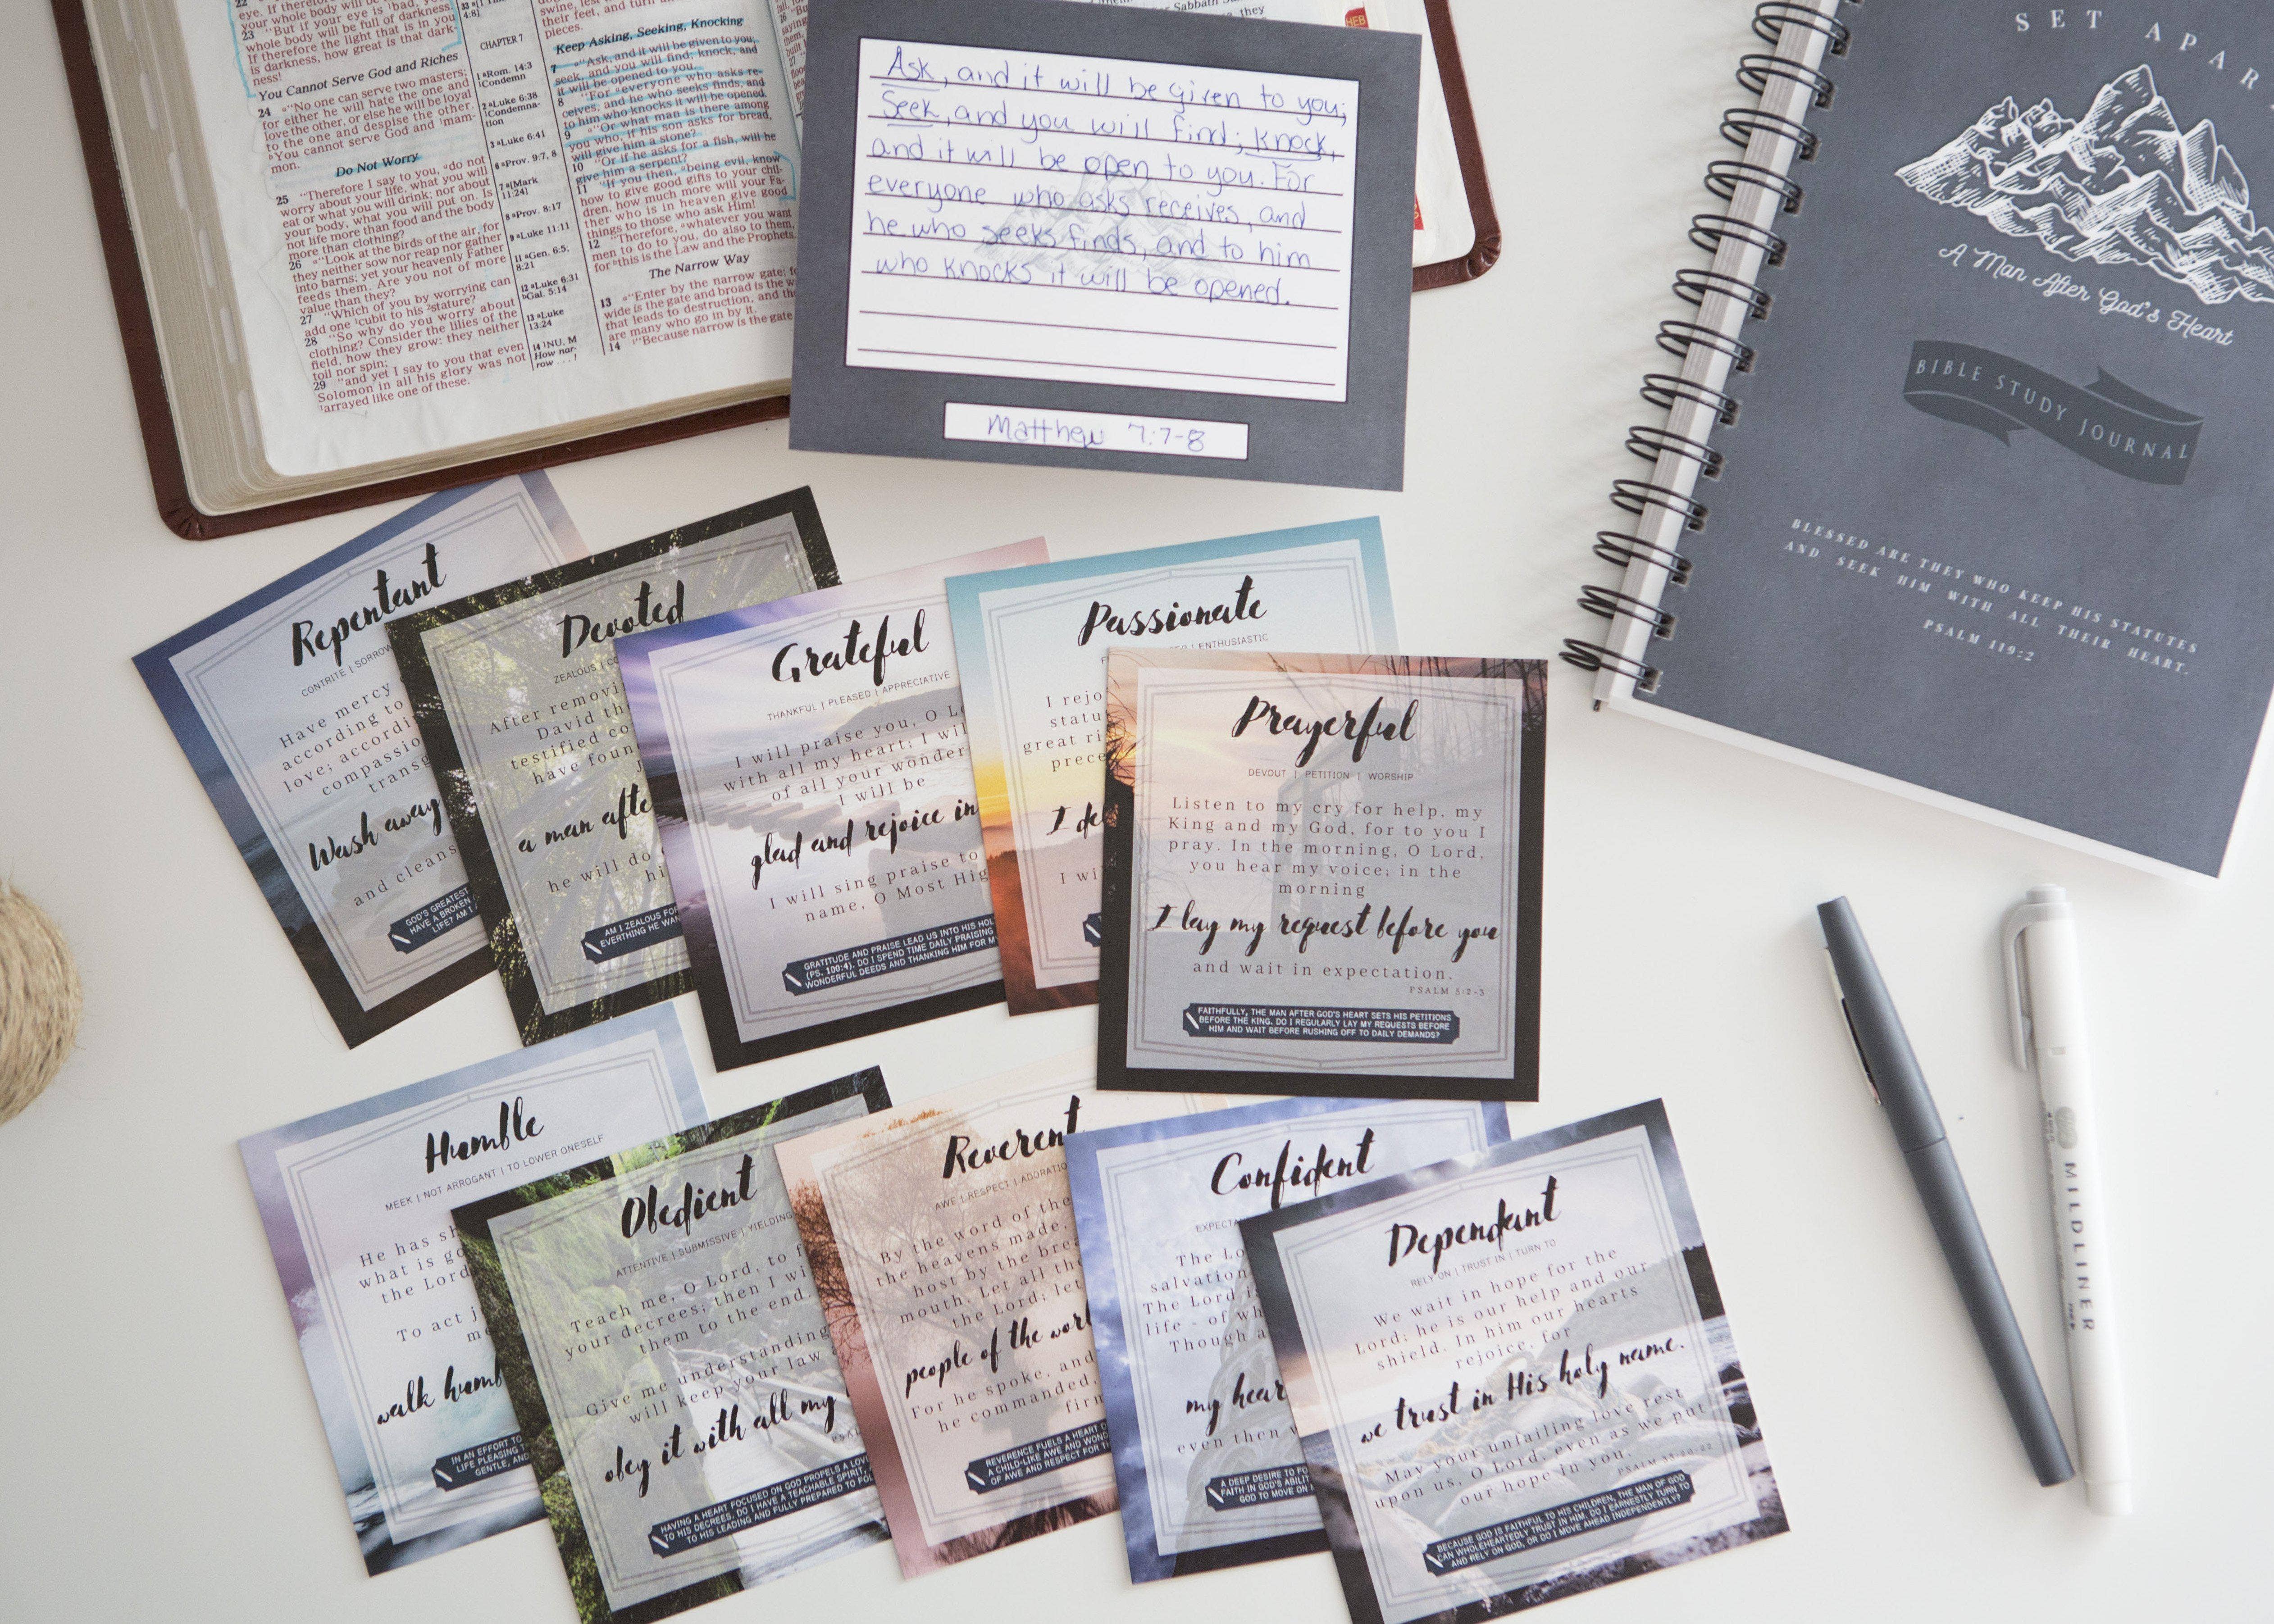 eye. If therefore
your whole body will be
23 "But if your eye is bad, your
whole body will be full of darkness.
If therefore the light that is in you
is darkness, how great is that dark-
ness!
You Cannot Serve God and Riches
24 "No one can serve two masters;
for either he will hate the one and
love the other, or else he will be loyal
to the one and despise the other.
You cannot serve God and mam-
mon.
Do Not Worry
25 "Therefore I say to you, do not
worry about your life, what you will
eat or what you will drink; nor about
your body, what you will put on. Is
not life more than food and the body
more than clothing?
26 "Look at the birds of the air, for
they neither sow nor reap nor gather
into barns; yet your heavenly Father
feeds them. Are you not of more
value than they?
27 "Which of you by worrying can
add one cubit to his stature?
28 "So why do you worry about
clothing? Consider the lilies of the
field, how they grow: they neither
toil nor spin;
29 "and yet I say to you that even
Solomon in all his glory was not
arrayed like one of these.
4:8]
CHAPTER 7
1 Rom. 14:3
Condemn
2 Luke 6:38
Condemna-
tion
3 Luke 6:41
6 Prov. 9:7, 8
7 [Mark
11:24]
8 Prov. 8:17
9 Luke 11:11
11 Gen. 6:5;
8:21
12 Luke 6:31
Gal. 5:14
13 Luke
13:24
14 NU, M
How nar-
row . . . !
swine, lest
their feet, and turn
pieces.
Keep Asking, Seeking, Knocking
7 "Ask, and it will be given to you;
seek, and you will find; knock, and
it will be opened to you.
8 "For everyone who asks re-
ceives, and he who seeks finds, and
to him who knocks it will be opened.
9 "Or what man is there among
you who, if his son asks for bread,
will give him a stone?
10 "Or if he asks for a fish, will he
give him a serpent?
11 "If you then, being evil, know
how to give good gifts to your chil-
dren, how much more will your Fa-
ther who is in heaven give good
things to those who ask Him!
12 "Therefore, whatever you want
men to do to you, do also to them,
for this is the Law and the Prophets.
The Narrow Way
13 "Enter by the narrow gate;
wide is the gate and broad is the
that leads to destruction, and
are many who go in by it.
14 "Because narrow is the gate
Sabbath
they
HEB
Ask, and it will be given to you;
Seek, and you will find; knock,
and it will be open to you. For
everyone who asks receives, and
he who seeks finds, and to him
who knocks it will be opened.
Matthew 7:7-8
SET APAR
A Man After God's Heart
BIBLE STUDY JOURNAL
BLESSED ARE THEY WHO KEEP HIS STATUTES
AND SEEK HIM WITH ALL THEIR HEART.
PSALM 119:2
Repentant
CONTRITE | SORROW
Have mercy
according to
love; accordi
compassio
transg
Wash away
and cleans
GOD'S GREATEST
HAVE A BROKEN
LIFE? AM I
Devoted
ZEALOUS | CO
After removi
David th
testified co
have foun
a man afte
he will do
hi
AM I ZEALOUS FO
EVERTHING HE WAN
Grateful
THANKFUL | PLEASED | APPRECIATIVE
I will praise you, O Lo
with all my heart; I wil
of all your wonder
I will be
glad and rejoice in
I will sing praise to
name, O Most Hig
GRATITUDE AND PRAISE LEAD US INTO HIS HOL
(PS. 100:4). DO I SPEND TIME DAILY PRAISING
WONDERFUL DEEDS AND THANKING HIM FOR M
Passionate
| ENTHUSIASTIC
I rejo
statu
great ri
prece
I del
I wi
Prayerful
DEVOUT | PETITION | WORSHIP
Listen to my cry for help, my
King and my God, for to you I
pray. In the morning, O Lord,
you hear my voice; in the
morning
I lay my request before you
and wait in expectation.
PSALM 5:2-3
FAITHFULLY, THE MAN AFTER GOD'S HEART SETS HIS PETITIONS
BEFORE THE KING. DO I REGULARLY LAY MY REQUESTS BEFORE
HIM AND WAIT BEFORE RUSHING OFF TO DAILY DEMANDS?
Humble
MEEK | NOT ARROGANT | TO LOWER ONESELF
He has sh
what is go
the Lord
To act j
me
walk humb
IN AN EFFORT TO
LIFE PLEASING T
GENTLE, AND
Obedient
ATTENTIVE | SUBMISSIVE | YIELDING
Teach me, O Lord, to f
your decrees; then I wi
them to the end.
Give me understanding
will keep your law
obey it with all my
PSAL
HAVING A HEART FOCUSED ON GOD PROPELS A LOV
TO HIS DECREES. DO I HAVE A TEACHABLE SPIRIT,
TO HIS LEADING AND FULLY PREPARED TO FOL
Reverent
AWE | RESPECT | ADORATIO
By the word of the
the heavens made,
host by the brea
mouth. Let all the
the Lord; let
people of the worl
For he spoke, and
he commanded,
firm
REVERENCE FUELS A HEART O
A CHILD-LIKE AWE AND WOND
OF AWE AND RESPECT FOR TH
Confident
EXPECTA
The Lo
salvation
The Lord is
life - of wh
Though a
my hear
even then
A DEEP DESIRE TO FO
FAITH IN GOD'S ABILIT
GOD TO MOVE ON
Dependant
RELY ON | TRUST IN | TURN TO
We wait in hope for the
Lord; he is our help and our
shield. In him our hearts
rejoice, for
we trust in His holy name.
May your unfailing love rest
upon us, O Lord, even as we put
our hope in you.
PSALM 33:20-22
BECAUSE GOD IS FAITHFUL TO HIS CHILDREN, THE MAN OF GOD
CAN WHOLEHEARTEDLY TRUST IN HIM. DO I EARNESTLY TURN TO
AND RELY ON GOD, OR DO I MOVE AHEAD INDEPENDENTLY?
MILDLINER